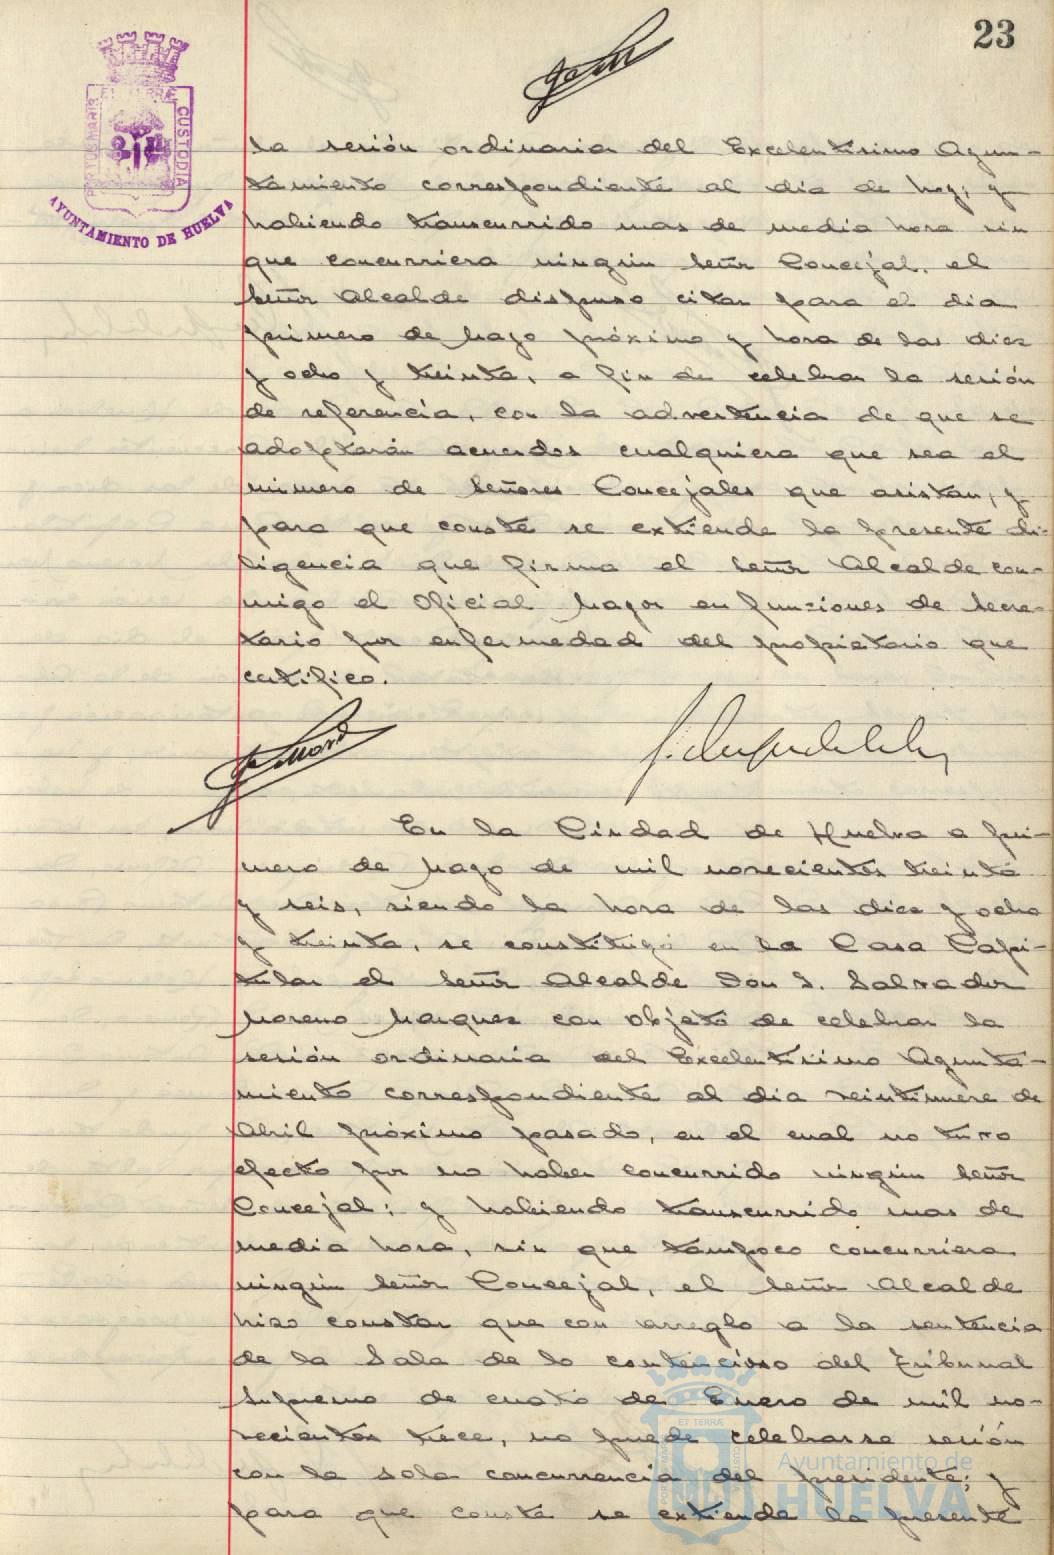 23
PORTUS MARIS ET TERRÆ CUSTODIA
AYUNTAMIENTO DE HUELVA
la sesión ordinaria del Excelentisimo Ayun-
tamiento correspondiente al dia de hoy; y
habiendo transcurrido mas de media hora sin
que concurriera ningún Señor Concejal, el
Señor Alcalde dispuso citar para el dia
primero de Mayo próximo y hora de las diez
y ocho y treinta, a fin de celebrar la sesión
de referencia, con la advertencia de que se
adoptarán acuerdos cualquiera que sea el
número de Señores Concejales que asistan, y
para que conste se extiende la presente di-
ligencia que firma el Señor Alcalde con-
migo el Oficial Mayor en funciones de Secre-
tario por enfermedad del propietario que
certifico.
En la Ciudad de Huelva a pri-
mero de Mayo de mil novecientos treinta
y seis, siendo la hora de las diez y ocho
y treinta, se constituyó en la Casa Capi-
tular el Señor Alcalde Don S. Salvador
Moreno Marquez con objeto de celebrar la
sesión ordinaria del Excelentisimo Ayunta-
miento correspondiente al dia veintinueve de
Abril próximo pasado, en el cual no tuvo
efecto por no haber concurrido ningún Señor
Concejal; y habiendo transcurrido mas de
media hora, sin que tampoco concurriera
ningún Señor Concejal, el Señor Alcalde
hizo constar que con arreglo a la sentencia
de la Sala de lo contencioso del Tribunal
Supremo de cuatro de Enero de mil no-
vecientos trece, no puede celebrarse sesión
con la sola concurrencia del presidente; y
para que conste se extiende la presente
ET TERRÆ
Ayuntamiento de
HUELVA